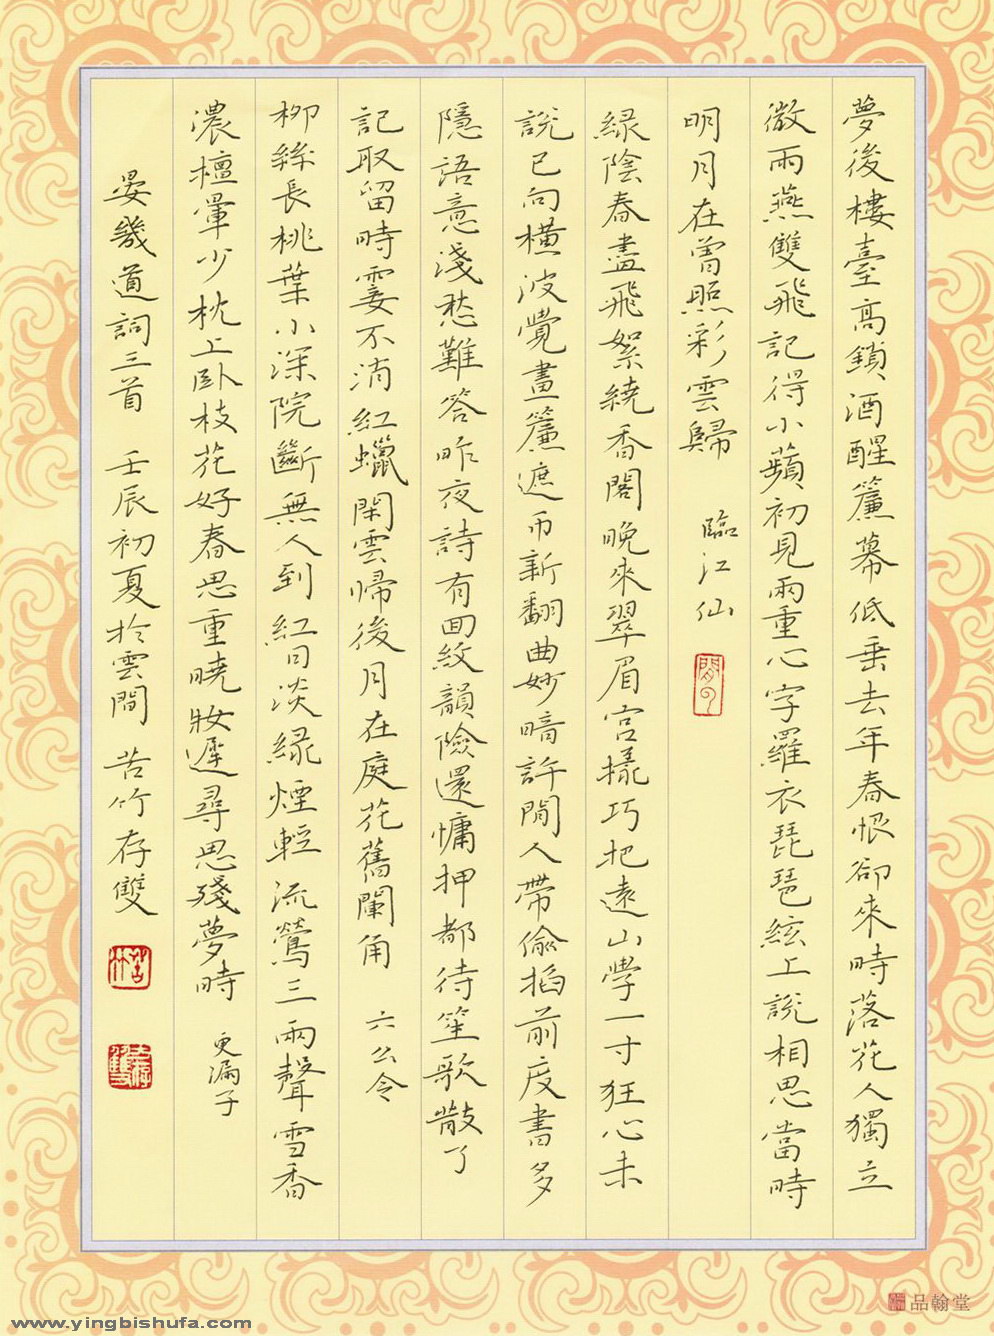 夢後樓臺高鎖酒醒簾幕低垂去年春恨卻來時落花人獨立
微雨燕雙飛記得小蘋初見兩重心字羅衣琵琶絃上說相思當時
明月在曾照彩雲歸 臨江仙
綠陰春盡飛絮繞香閣晚來翠眉宮樣巧把遠山學一寸狂心未
說已向橫波覺畫簾遮帀新翻曲妙暗許閒人帶偷掐前度書多
隱語意淺愁難答昨夜詩有回紋韻險還慵押都待笙歌散了
記取留時霎不消紅蠟閑雲歸後月在庭花舊闌角 六幺令
柳絲長桃葉小深院斷無人到紅日淡綠煙輕流鶯三兩聲雪香
濃檀暈少枕上臥枝花好春思重曉妝遲尋思殘夢時 更漏子
晏幾道詞三首 壬辰初夏於雲間 苦竹存雙
品翰堂
www.yingbishufa.com